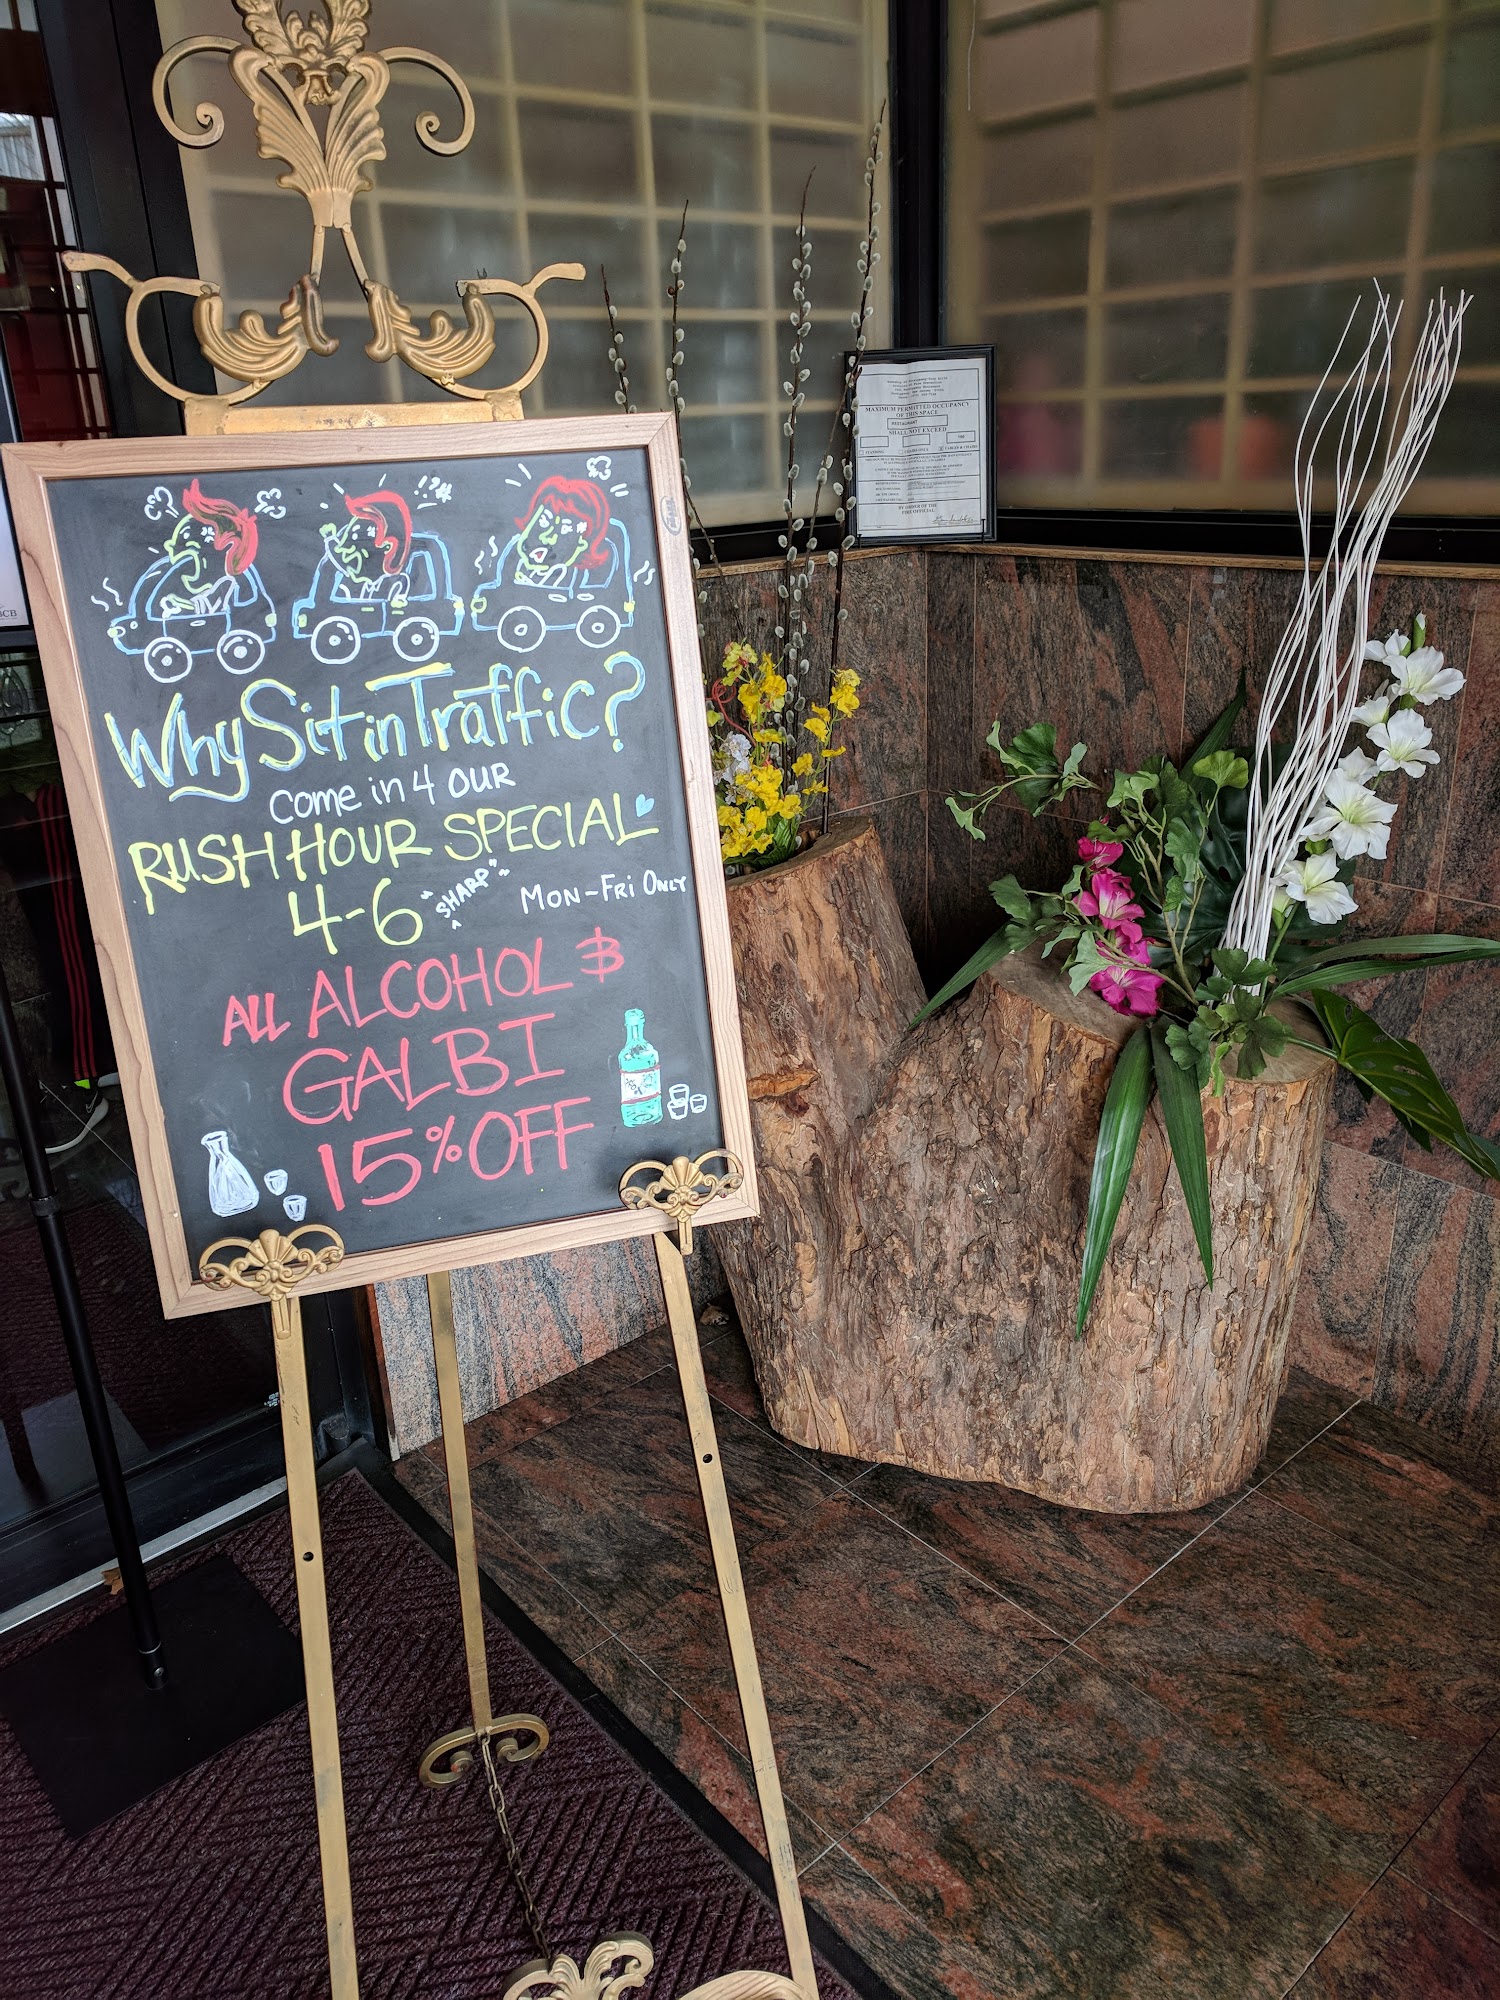 !?!#
Why Sit in Traffic?
Come in 4 OUR
RUSH HOUR SPECIAL
4-6 "SHARP" MON-FRI ONLY
ALL ALCOHOL &
GALBI
15% OFF
MAXIMUM PERMITTED OCCUPANCY
OF THIS SPACE
RESTAURANT
SHALL NOT EXCEED
BY ORDER OF THE
FIRE OFFICIAL